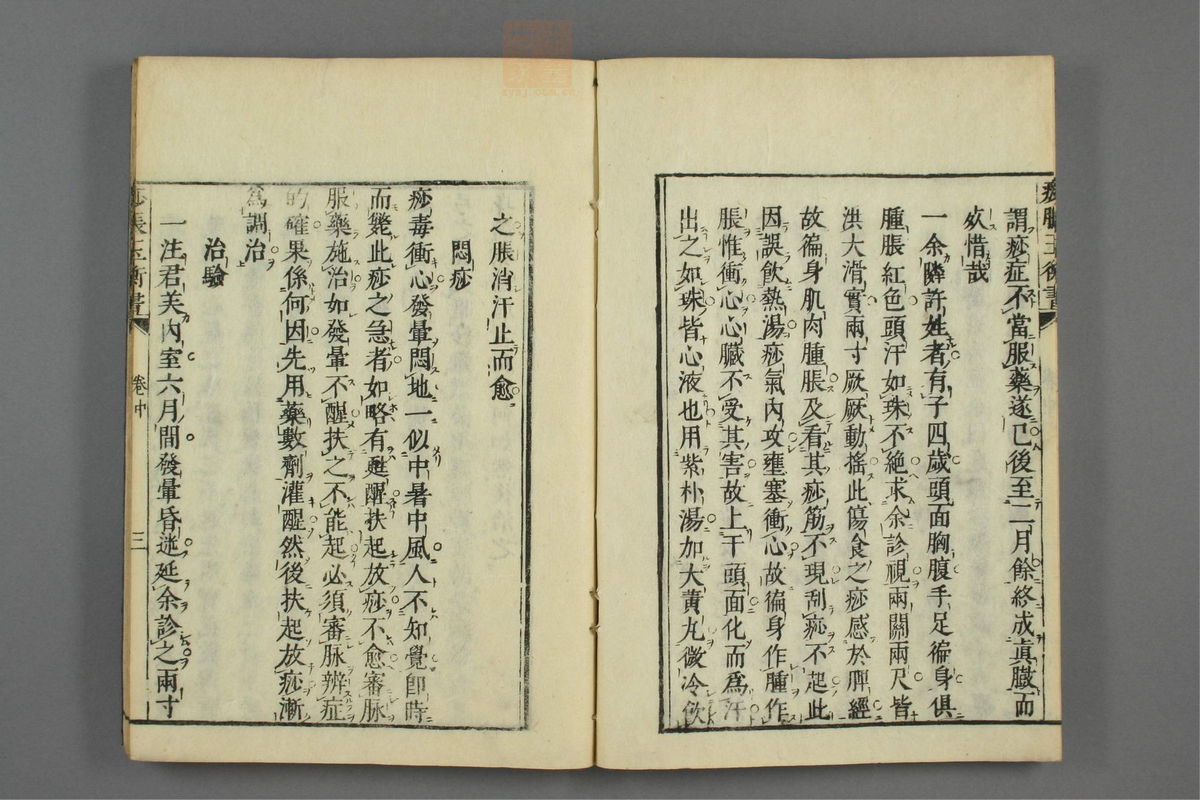 謂痧症不當服藥遂已後至二月餘終成眞臟而
欬惜哉
一余隣許姓者有子四歲頭面胸腹手足徧身俱
腫脹紅色頭汗如珠不絕求余診視兩關兩尺皆
洪大滑實兩寸厥厥動搖此傷食之痧感於脾經
故徧身肌肉腫脹及看其痧筋不現刮痧不起此
因誤飲熱湯痧氣內攻壅塞衝心故徧身作腫作
脹惟衝心心臟不受其害故上干頭面化而爲汗
出之如珠皆心液也用紫朴湯加大黃丸微冷飲
之脹消汗止而愈
悶痧
痧毒衝心發暈悶地一似中暑中風人不知覺卽時
而斃此痧之急者如略有甦醒扶起放痧不愈審脉
服藥施治如發暈不醒扶之不能起必須審脉辨症
的確果係何因先用藥數劑灌醒然後扶起放痧漸
爲調治
治驗
一汪君美內室六月間發暈昏迷延余診之兩寸
痧脹玉衡書
卷中
三